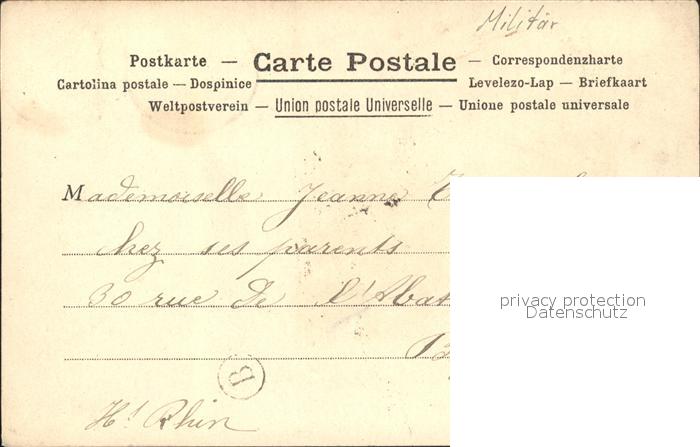 Militär
Postkarte — Carte Postale — Correspondenzharte
Cartolina postale — Dospinice Levelezo-Lap — Briefkaart
Weltpostverein — Union postale Universelle — Unione postale universale
Mademoiselle Jeanne
chez ses parents
30 rue de l'Abat
privacy protection
Datenschutz
B
Ht Rhin